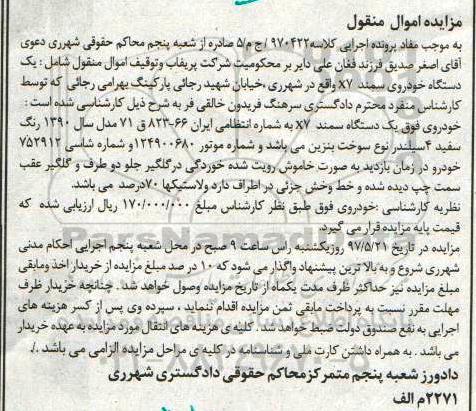 مزایده اموال منقول
به موجب مفاد پرونده اجرایی کلاسه ۹۷۰۴۲۲ ا ج م/۵ صادره از شعبه پنجم محاکم حقوقی شهرری دعوی
آقای اصغر صدیق فرزند فغان علی دایر بر محکومیت شرکت پریفاب وتوقیف اموال منقول شامل : یک
دستگاه خودروی سمند x۷ واقع در شهرری ،خیابان شهید رجائی پارکینگ بهرامی رجائی که توسط
کارشناس منفرد محترم دادگستری سرهنگ فریدون خالقی فر به شرح ذیل کارشناسی شده است :
خودروی فوق یک دستگاه سمند x۷ به شماره انتظامی ایران ۶۶-۸۲۳ ق ۷۱ مدل سال ۱۳۹۰ رنگ
سفید ۴سیلندر نوع سوخت بنزین می باشد و شماره موتور ۱۲۴۹۰۰۶۸۰و شماره شاسی ۷۵۲۹۱۲
خودرو در زمان بازدید به صورت خاموش رویت شده خوردگی درگلگیر جلو دو طرف و گلگیر عقب
سمت چپ دیده شده و خط وخش جزئی در اطراف دارد ولاستیکها ۷۰درصد می باشد.
نظریه کارشناسی :خودروی فوق طبق نظر کارشناس مبلغ ۱۷۰/۰۰۰/۰۰۰ ریال ارزیابی شده که
قیمت پایه مزایده قرار می گیرد.
مزایده در تاریخ ۹۷/۵/۲۱ روزیکشنبه راس ساعت ۹ صبح در محل شعبه پنجم اجرایی احکام مدنی
شهرری شروع و به بالا ترین پیشنهاد واگذار می شود که ۱۰ در صد مبلغ مزایده از خریدار اخذ ومابقی
مبلغ مزایده نیز حداکثر ظرف مدت یکماه از تاریخ مزایده وصول خواهد شد. چنانچه خریدار ظرف
مهلت مقرر نسبت به پرداخت مابقی ثمن مزایده اقدام ننماید ، سپرده وی پس از کسر هزینه های
اجرایی به نفع صندوق دولت ضبط خواهد شد. کلیه ی هزینه های انتقال مورد مزایده به عهده خریدار
می باشد . به همراه داشتن کارت ملی و شناسنامه در کلیه ی مراحل مزایده الزامی می باشد ./.
دادورز شعبه پنجم متمرکز محاکم حقوقی دادگستری شهرری
۲۲۷۱م الف